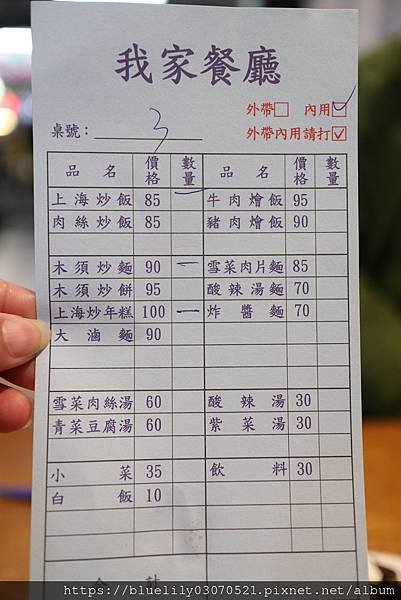 我家餐廳
外帶□ 內用☑
桌號：3 外帶內用請打☑
品名 價格 數量 品名 價格 數量
上海炒飯 85 一 牛肉燴飯 95
肉絲炒飯 85 豬肉燴飯 90
木須炒麵 90 一 雪菜肉片麵 85
木須炒餅 95 酸辣湯麵 70
上海炒年糕 100 一 炸醬麵 70
大滷麵 90
雪菜肉絲湯 60 酸辣湯 30
青菜豆腐湯 60 紫菜湯 30
小菜 35 飲料 30
白飯 10
合計
https://bluelily03070521.pixnet.net/album